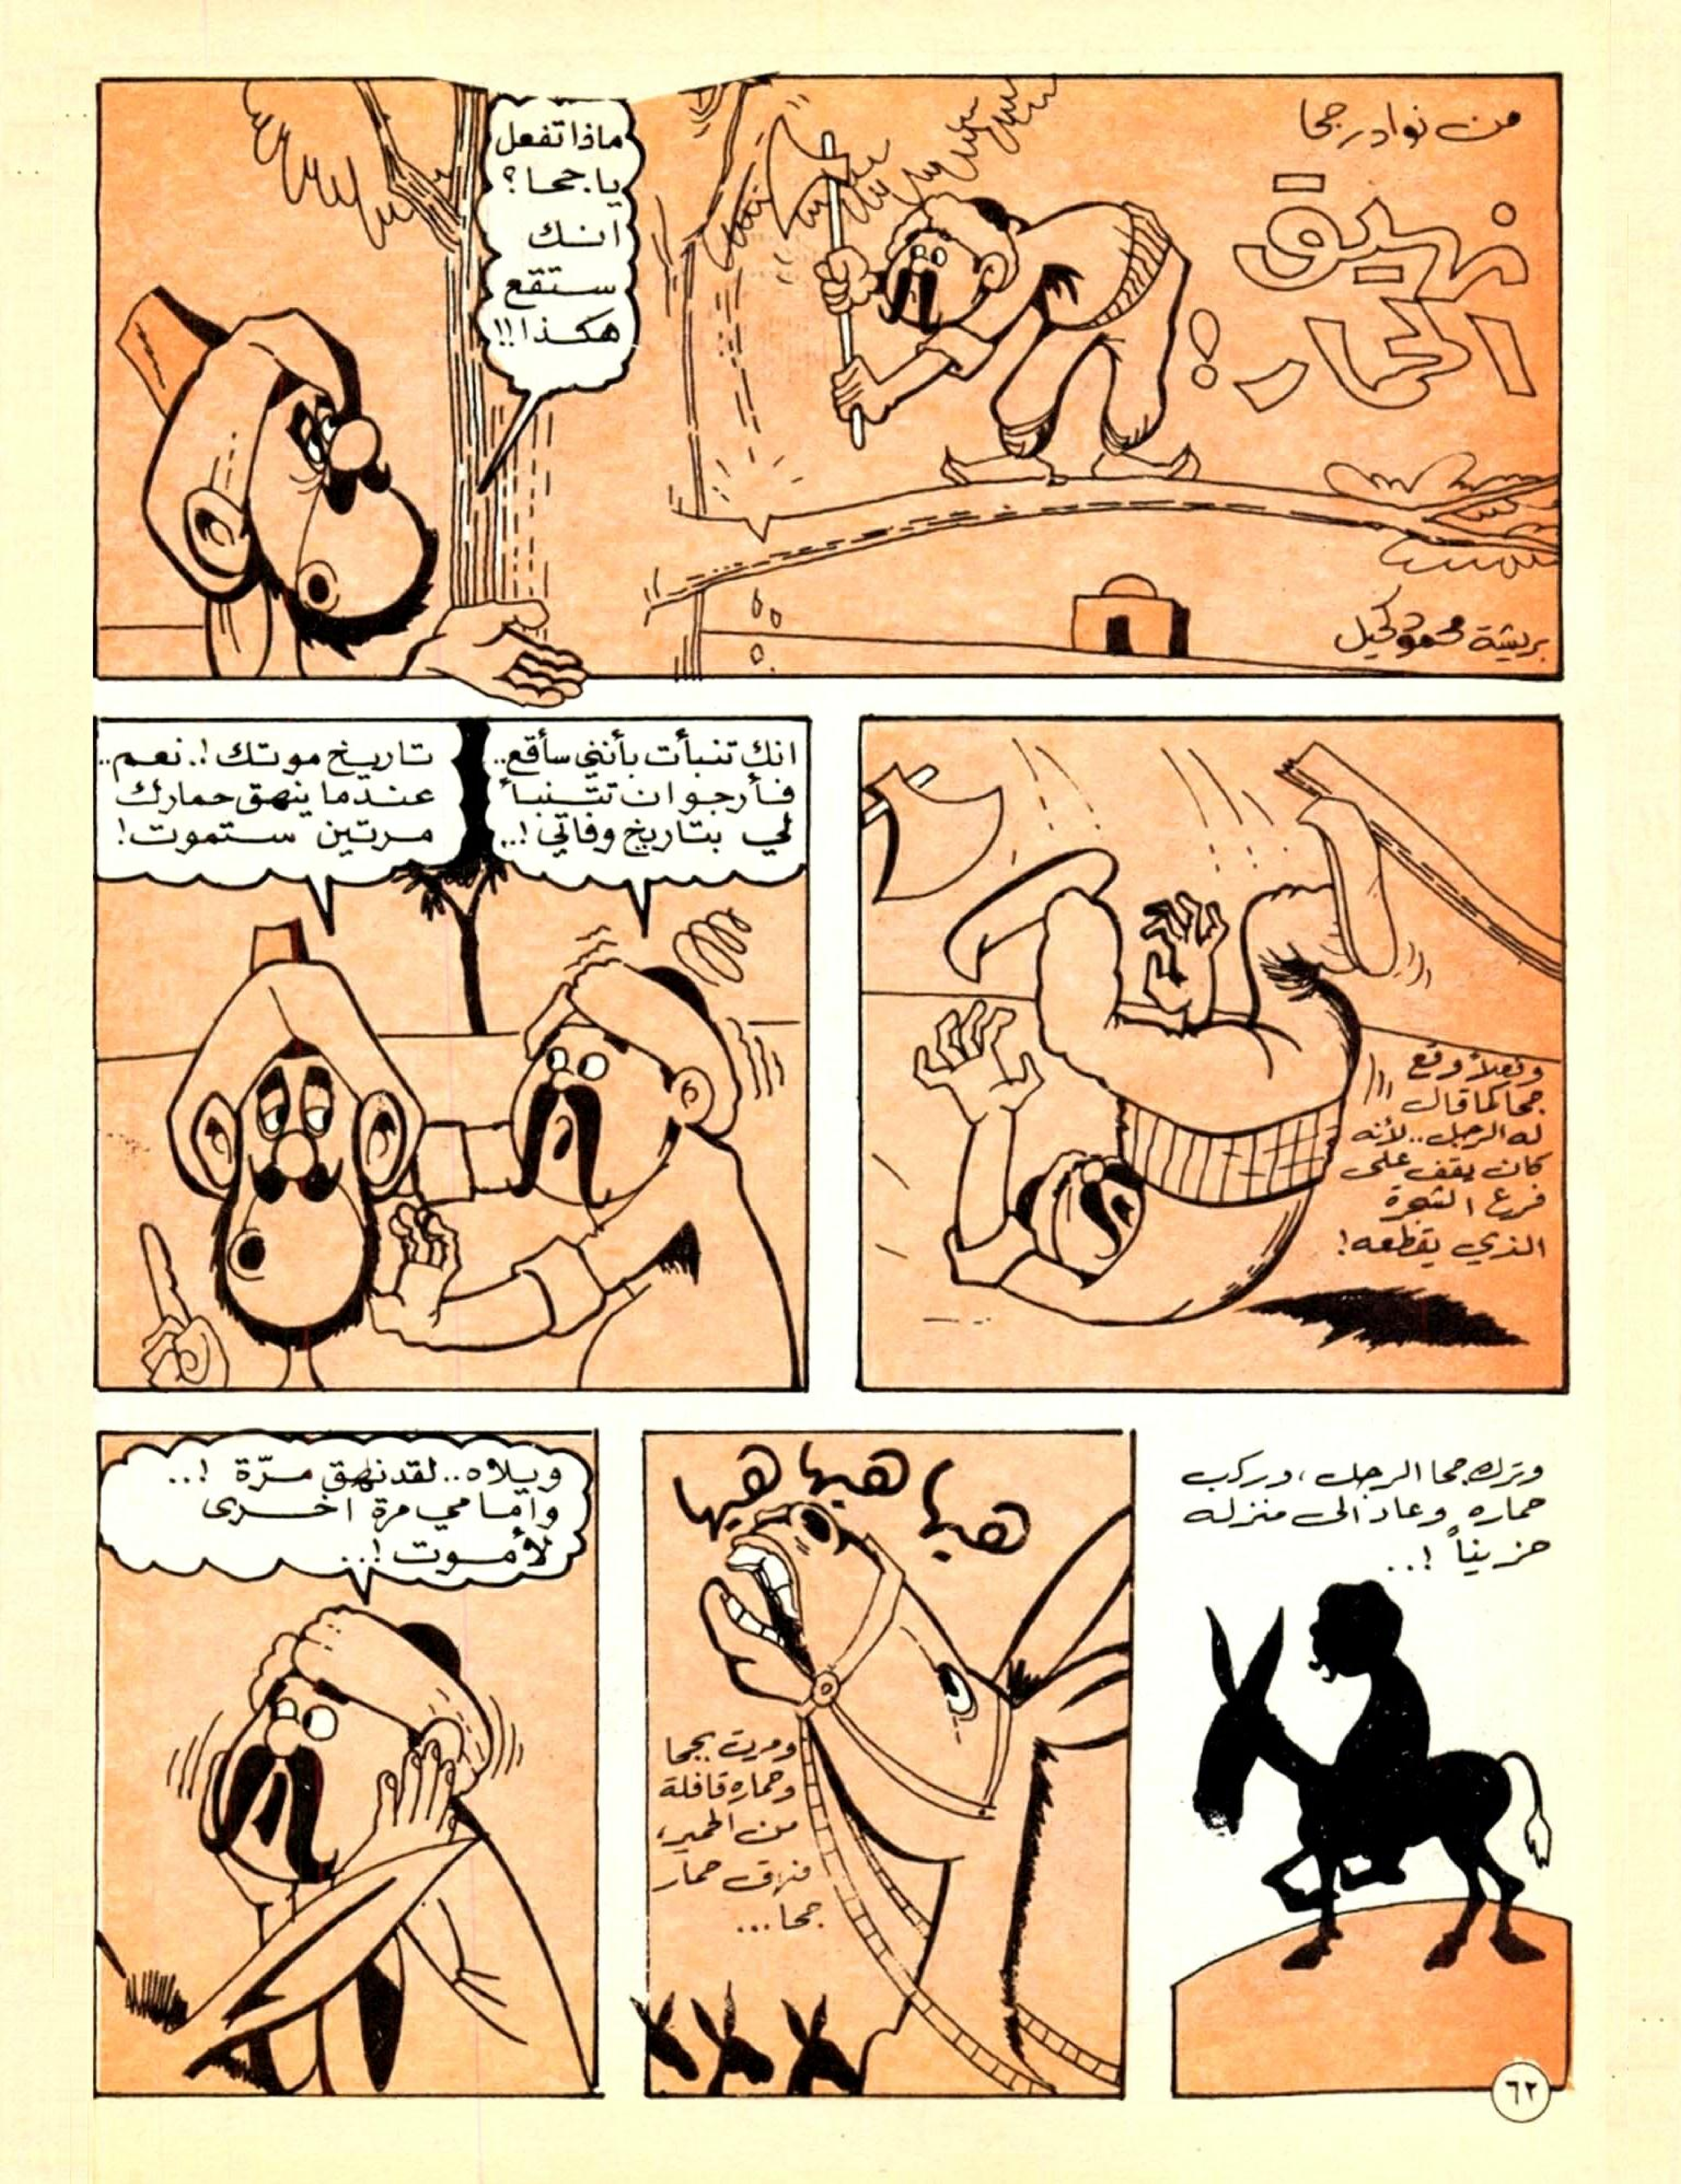 من نوادر جحا
نهيق
الحمار!
ماذا تفعل
يا جحا؟
انك
ستقع
هكذا!!
بريشة محمود كحيل
وفعلاً وقع
جحا كما قال
له الرجل.. لأنه
كان يقف على
فرع الشجرة
الذي يقطعه!
انك تنبأت بأنني سأقع..
فأرجو ان تتنبأ
لي بتاريخ وفاتي!..
تاريخ موتك!. نعم..
عندما ينهق حمارك
مرتين ستموت!
وترك جحا الرجل، وركب
حماره وعاد الى منزله
حزيناً!..
هيها هيها هيها
ومرت بجحا
وحماره قافلة
من الحمير،
فنهق حمار
جحا...
ويلاه.. لقد نهق مرّة!..
وامامي مرة اخرى
لأموت!..
٦٢